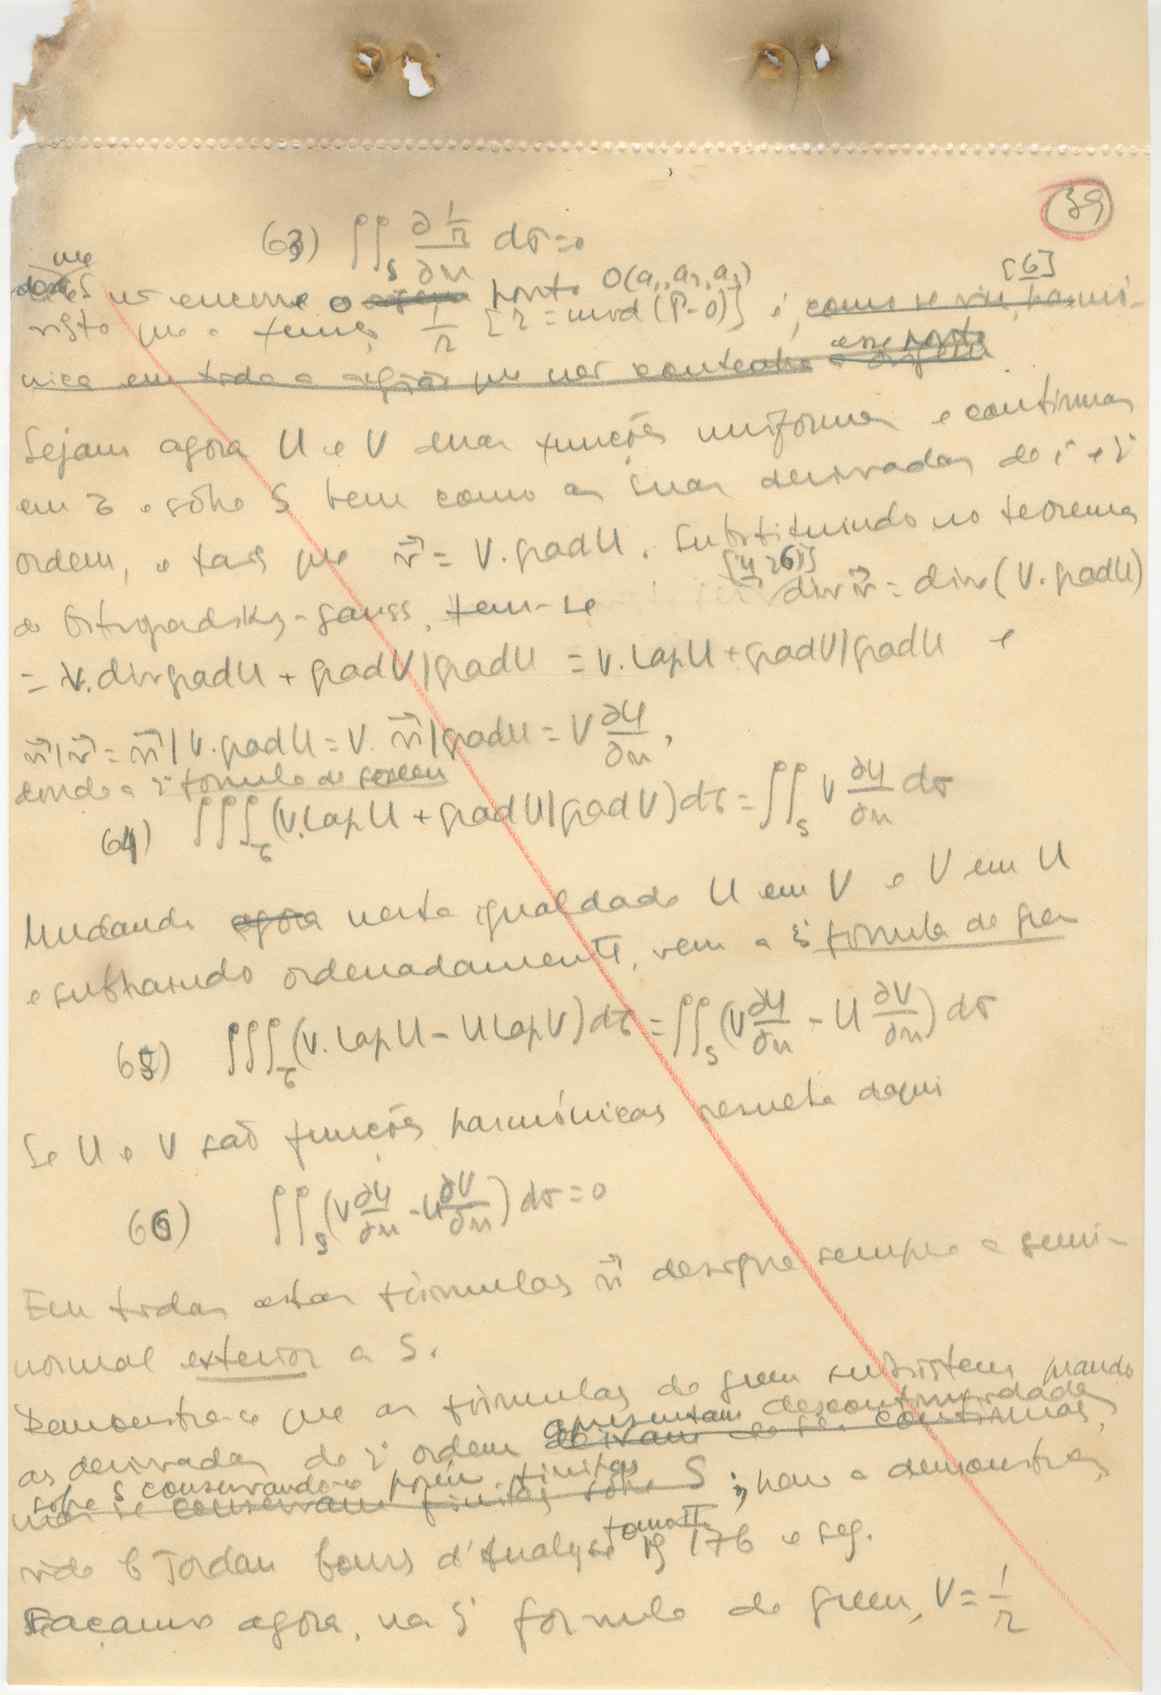 39
(63) ∫∫_S ∂(1/r)/∂n dσ=0
S não encerre o origem ponto O(a₁, a₂, a₃)
visto que a função 1/r [r = mod (P-O)] é, como se viu, [6] harmó-
nica em toda a região que não contenha a origem esse ponto
Sejam agora U e V duas funções uniformes e continuas
em τ e sôbre S bem como as suas derivadas de 1ª e 2ª
ordem, e tais que v⃗ = V.grad U. Substituindo no teorema
de Ostrogradsky-Gauss, tem-se [4, 26)] div v⃗ = div (V.grad U)
= V.div grad U + grad V|grad U = V.lap U + grad V|grad U e
n⃗|v⃗ = n⃗|V.grad U = V. n⃗|grad U = V ∂U/∂n,
donde a 2ª fórmula de Green
(64) ∫∫∫_τ (V.lap U + grad U|grad V) dτ = ∫∫_S V ∂U/∂n dσ
Mudando agora nesta igualdade U em V e V em U
e subtraindo ordenadamente, vem a 3ª fórmula de Green
(65) ∫∫∫_τ (V.lap U - U lap V) dτ = ∫∫_S (V ∂U/∂n - U ∂V/∂n) dσ
Se U e V são funções harmónicas resulta daqui
(66) ∫∫_S (V ∂U/∂n - U ∂V/∂n) dσ = 0
Em todas estas fórmulas n⃗ designa sempre a semi-
normal exterior a S.
Demonstra-se que as fórmulas de Green subsistem quando
as derivadas de 2ª ordem apresentam descontinuidades
sobre S conservando-se porém finitas
mas se conservam finitas sobre S; para a demonstração,
vide C Jordan Cours d'Analyse tomo II pg 176 e seg.
Façamos agora, na 3ª fórmula de Green, V = 1/r